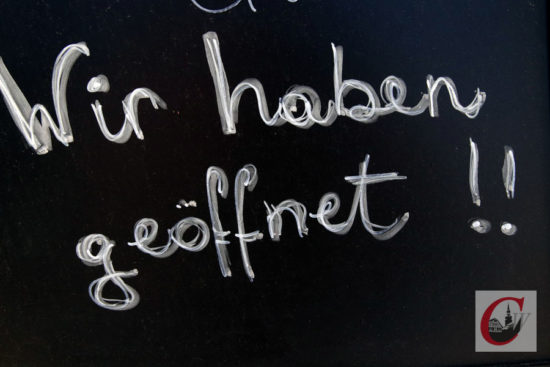 Wir haben
geöffnet !!